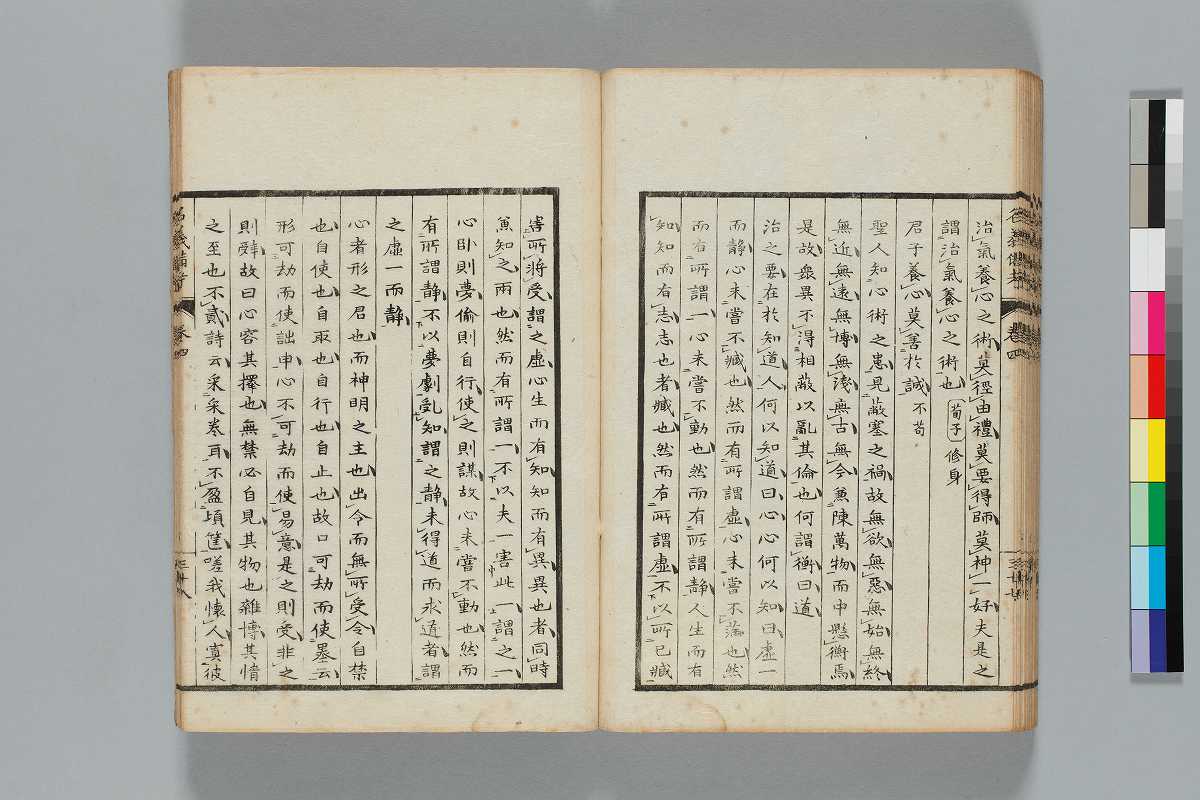 治氣養心之術莫徑由禮莫要得師莫神一好夫是之
謂治氣養心之術也 荀子 修身
君子養心莫善於誠 不苟
聖人知心術之患見蔽塞之禍故無欲無惡無始無終
無近無遠無博無淺無古無今兼陳萬物而中懸衡焉
是故衆異不得相蔽以亂其倫也何謂衡曰道
治之要在於知道人何以知道曰心心何以知曰虛一
而靜心未嘗不臧也然而有所謂虛心未嘗不滿也然
而有所謂一心未嘗不動也然而有所謂靜人生而有
知知而有志志也者臧也然而有所謂虛不以所已臧
害所將受謂之虛心生而有知知而有異異也者同時
兼知之兩也然而有所謂一不以夫一害此一謂之一
心臥則夢偷則自行使之則謀故心未嘗不動也然而
有所謂靜不以夢劇亂知謂之靜未得道而求道者謂
之虛一而靜
心者形之君也而神明之主也出令而無所受令自禁
也自使也自取也自行也自止也故口可劫而使墨云
形可劫而使詘申心不可劫而使易意是之則受非之
則辭故曰心容其擇也無禁必自見其物也雜博其情
之至也不貳詩云采采卷耳不盈頃筐嗟我懷人寘彼
名義備考 卷四
卷四